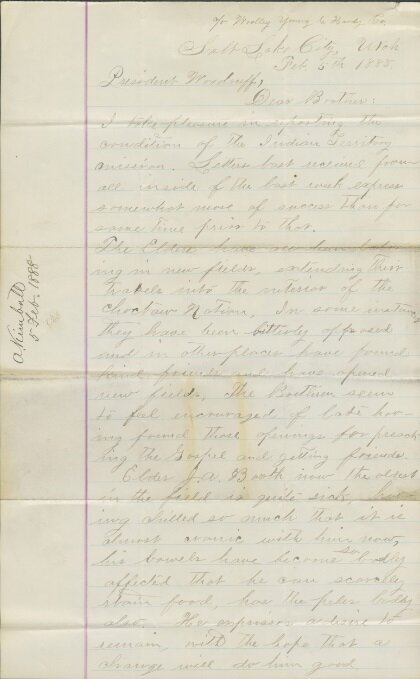 c/o Woolley Young & Hardy Co.
Salt Lake City, Utah
Feb 5th 1888.
President Woodruff,
Dear Brother:
I take pleasure in reporting the
condition of the Indian Territory
mission. Letters last received from
all inside of the last week express
somewhat more of success than for
some time prior to that.
The Elders have
ing in new fields, extending their
travels into the interior of the
Choctaw Nation. In some instances
they have been bitterly opposed
and in other places have found
kind friends and have opened
new fields. The Brethren seem
to feel encouraged of late hav-
ing found those openings for preach
ing the Gospel and getting friends.
Elder J. A. Booth now the oldest
in the field is quite sick, hav-
ing chilled so much that it is
almost cronic with him now,
his bowels have become so badly
affected that he can scarcely
retain food, has the piles badly
also. He expresses a desire to
remain, with the hope that a
change will do him good.
A. Kimball
5 Feb. 1888